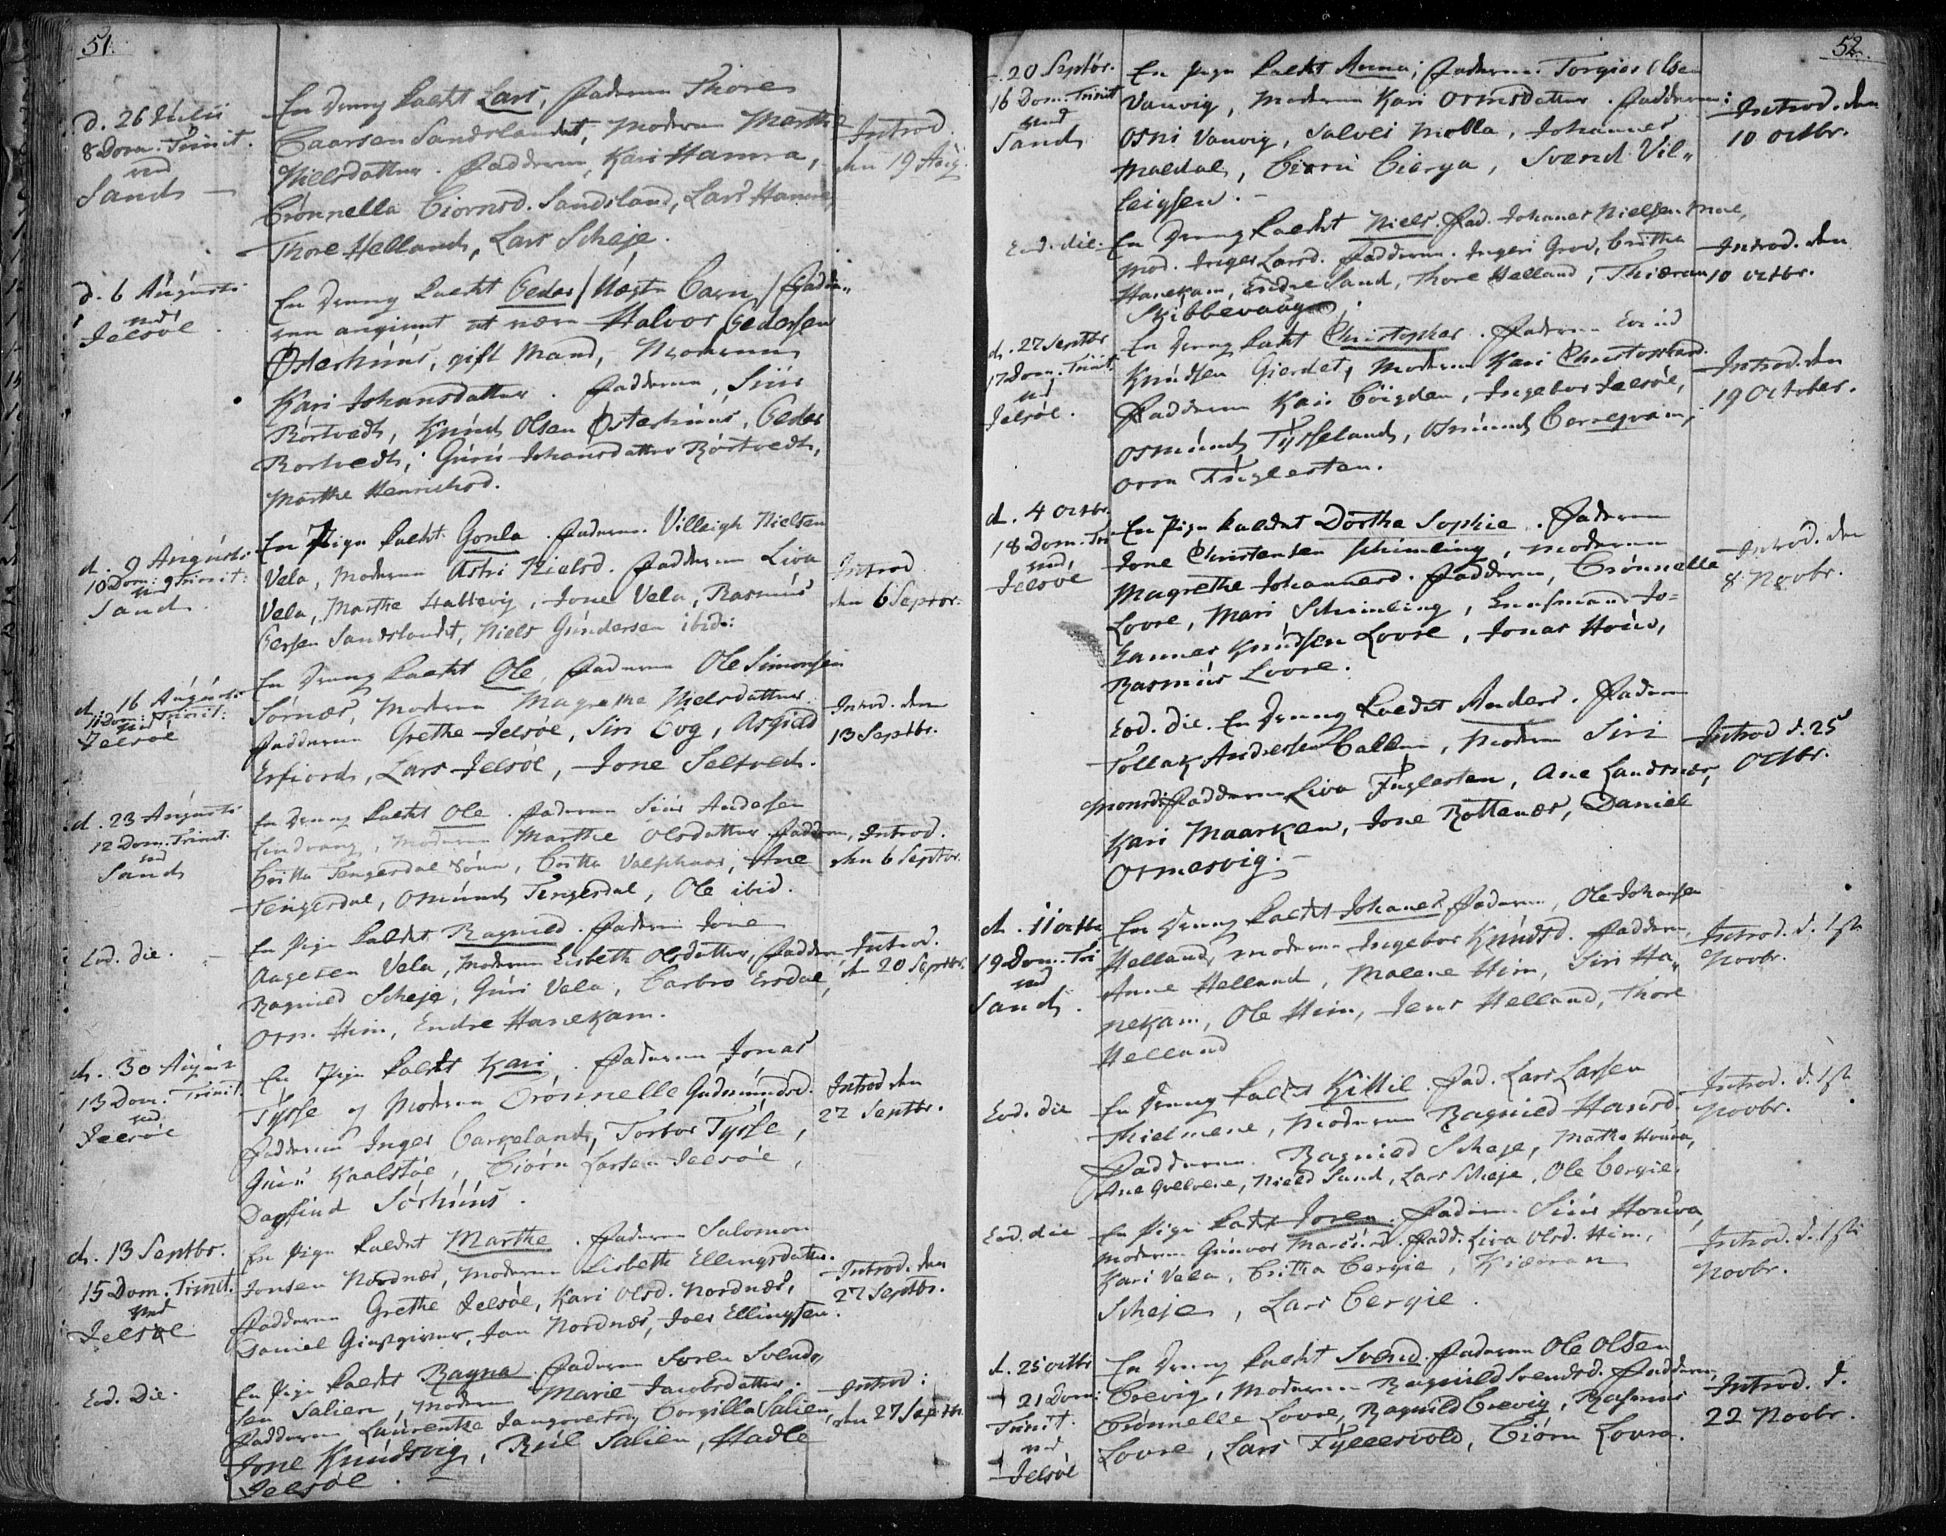 51.
d. 26 Julii
8 Dom: Trinit.
ved
Sand
En Dreng kaldt Lars, Faderen Thore
Sandslandet, Moderen Marthe
Nielsdatter. Fadderne, Kari Hamra,
Sandsland, Lars Hamra,
Thore Helland, Lars Scheje.
Introd.
den 19 Aug.
d. 6 Augusti
ved
Jelsøe
En Dreng kaldt Peder / Uægte Barn / Fade-
ren angivet at være Halvor Pedersen
Østerhuus, gift Mand, Moderen
Kari Johansdatter. Fadderne, Siur
Rørtvedt, Knud Olsen Østerhuus, Peder
Rørtvedt, Guru Johansdatter Rørtvedt,
Marthe Henrichsd.
d. 9 Augusti
10 Dom: Trinit:
ved
Sand.
En Pige kaldt Gonla. Faderen Villeigh Nielsen
Vela, Moderen Astri Nielsd. Fadderne Liva
Vela, Marthe Hattevig, Jone Vela, Rasmus
Sandslandet, Niels Gundersen ibid:
Introd.
den 6 Septbr.
d. 16 Augusti
11 Dom: Trinit:
ved
Jelsøe
En Dreng kaldt Ole, Faderen Ole Simonsen
Sørnæs, Moderen Magrethe Nielsdatter
Fadderne Grethe Jelsøe, Siri Bog, Asgield
Erfiord, Lars Jelsøe, Jone Seltvedt.
Introd. den
13 Septbr.
d. 23 Augusti
12 Dom. Trinit.
ved
Sand
En Dreng kaldt Ole. Faderen Siur Andersen
Lindvang, Moderen Marthe Olsdatter. Fadderne,
Britta Tengesdal, Britta Valskaar, Ane
Tengesdal, Osmund Tengesdal, Ole ibid.
Introd.
den 6 Septbr.
Eod. die.
En Pige kaldet Ragnild. Faderen Jone
Aagesen Vela, Moderen Lisbeth Olsdatter, Fadderne,
Ragnild Scheje, Guri Vela, Barbro Ersdal,
Orm Him, Endre Hanekam.
Introd.
den 20 Septbr.
d. 30 August
13 Dom. Trinit.
ved
Jelsøe
En Pige kaldt Kari. Faderen Jonas
Tysse og Moderen Brønnelle Gudmundsd.
Fadderne Inger Barkeland, Torbor Tysse,
Guru Kaalstøe, Biørn Larsen Jelsøe,
Dagfind Sørhuus.
Introd den
27 Septbr.
d. 13 Septbr.
15 Dom. Trinit.
ved
Jelsøe
En Pige kaldet Marthe. Faderen Salomon
Jonsen Nordnæs, Moderen Lisbeth Ellingsdatter.
Fadderne Grethe Jelsøe, Kari Olsd. Nordnæs,
Daniel Giestgiver, Jan Nordnæs, Joer Ellingsen.
Introd. den
27 Septbr.
Eod. die.
En Pige kaldet Ragna. Faderen Soren Svend-
sen Salien, Moderen Marie Jacobsdatter.
Fadderne Laurentze Borgilla Salien,
Jone Knudsvig, Riul Salien, Hadle
Jelsøe.
Introd:
den 27 Septbr.
52.
d. 20 Septbr.
16 Dom. Trinit
ved
Sand
En Pige kaldt Anna; Faderen Torgier Olsen
Vanvig, Moderen Kari Osmsdatter. Fadderne:
Osni Vanvig, Salvei Molla, Johannes
Maeldal, Svend Vil-
leigsen.
Introd. den
10 Octbr.
Eod. die.
En Dreng kaldt Niels. Fad. Johanes Nielsen
Mod. Inger Larsd. Fadderne. Ingeri Grov, Britha
Hanekam, Endre Sand, Thore Helland,
Skibbevaag
Introd. den
10 Octbr.
d. 27 Septbr
17 Dom. Trinit.
ved
Jelsøe.
En Dreng kaldt Christopher. Faderen
Knudsen Gierdet, Moderen Kari Christophersd.
Fadderne Kari Böigden, Ingebor Jelsøe,
Osmund Tysseland, Osmund Berregvam,
Orm Fuglesten.
Introd. den
19 October.
d. 4 Octbr.
18 Dom. Tr.
ved,
Jelsøe
En Pige kaldet Dorthe Sophie. Faderen
Jone Christensen Schimling, Moderen
Magrethe Johannesd. Fadderne, Brønnelle
Lovre, Mari Schimling, Jo-
hannes Knudsen Lovre, Jonas Houe,
Rasmus Lovre.
Introd. den
8 Novbr.
Eod. die. En Dreng kaldet Anders. Faderen
Tollak Andersen, Moderen Siri
Monsd: Fadderne Liva Fuglesten, Ane Landsnæs,
Kari Maarken, Jone Bottenæs, Daniel
Ormesvig.
Introd d. 25
Octbr.
d. 11 Octbr
19 Dom. Tri
ved
Sand.
En Dreng kaldet Johanes. Faderen, Ole Johansen
Helland, Moderen Ingebor Knudsd. Fadderne,
Anne Helland, Malene Him, Siri Ha-
nekam, Ole Him, Jens Helland, Thore
Helland
Introd. d. 1ste
Novbr.
Eod. die
En Dreng kaldet Kittil. Fad. Lars Larsen
Moderen Ragnild Hansd.
Fadderne. Ragnild Scheje, Marthe Houva,
Ane, Nield Sand, Lars Scheje, Ole Bergie.
Introd. d. 1ste
Novbr.
Eod. die
En Pige kaldt Joren. Faderen Siur Houva,
Moderen Gunvor. Fadd. Liva Olsd. Him,
Kari Vela, Britha Bergie,
Scheje, Lars Bergie.
Introd. d. 1ste
Novbr.
d. 25 Octbr
21 Dom:
Trinit.
ved,
Jelsøe
En Dreng kaldet Svend. Faderen Ole Olsen
Brevig, Moderen Ragnild Svendsd. Fadderne,
Brønnelle Lovre, Ragnild Brevig, Rasmus
Lovre, Lars Fyllesvold, Biørn Lovra.
Introd. d.
22 Novbr.